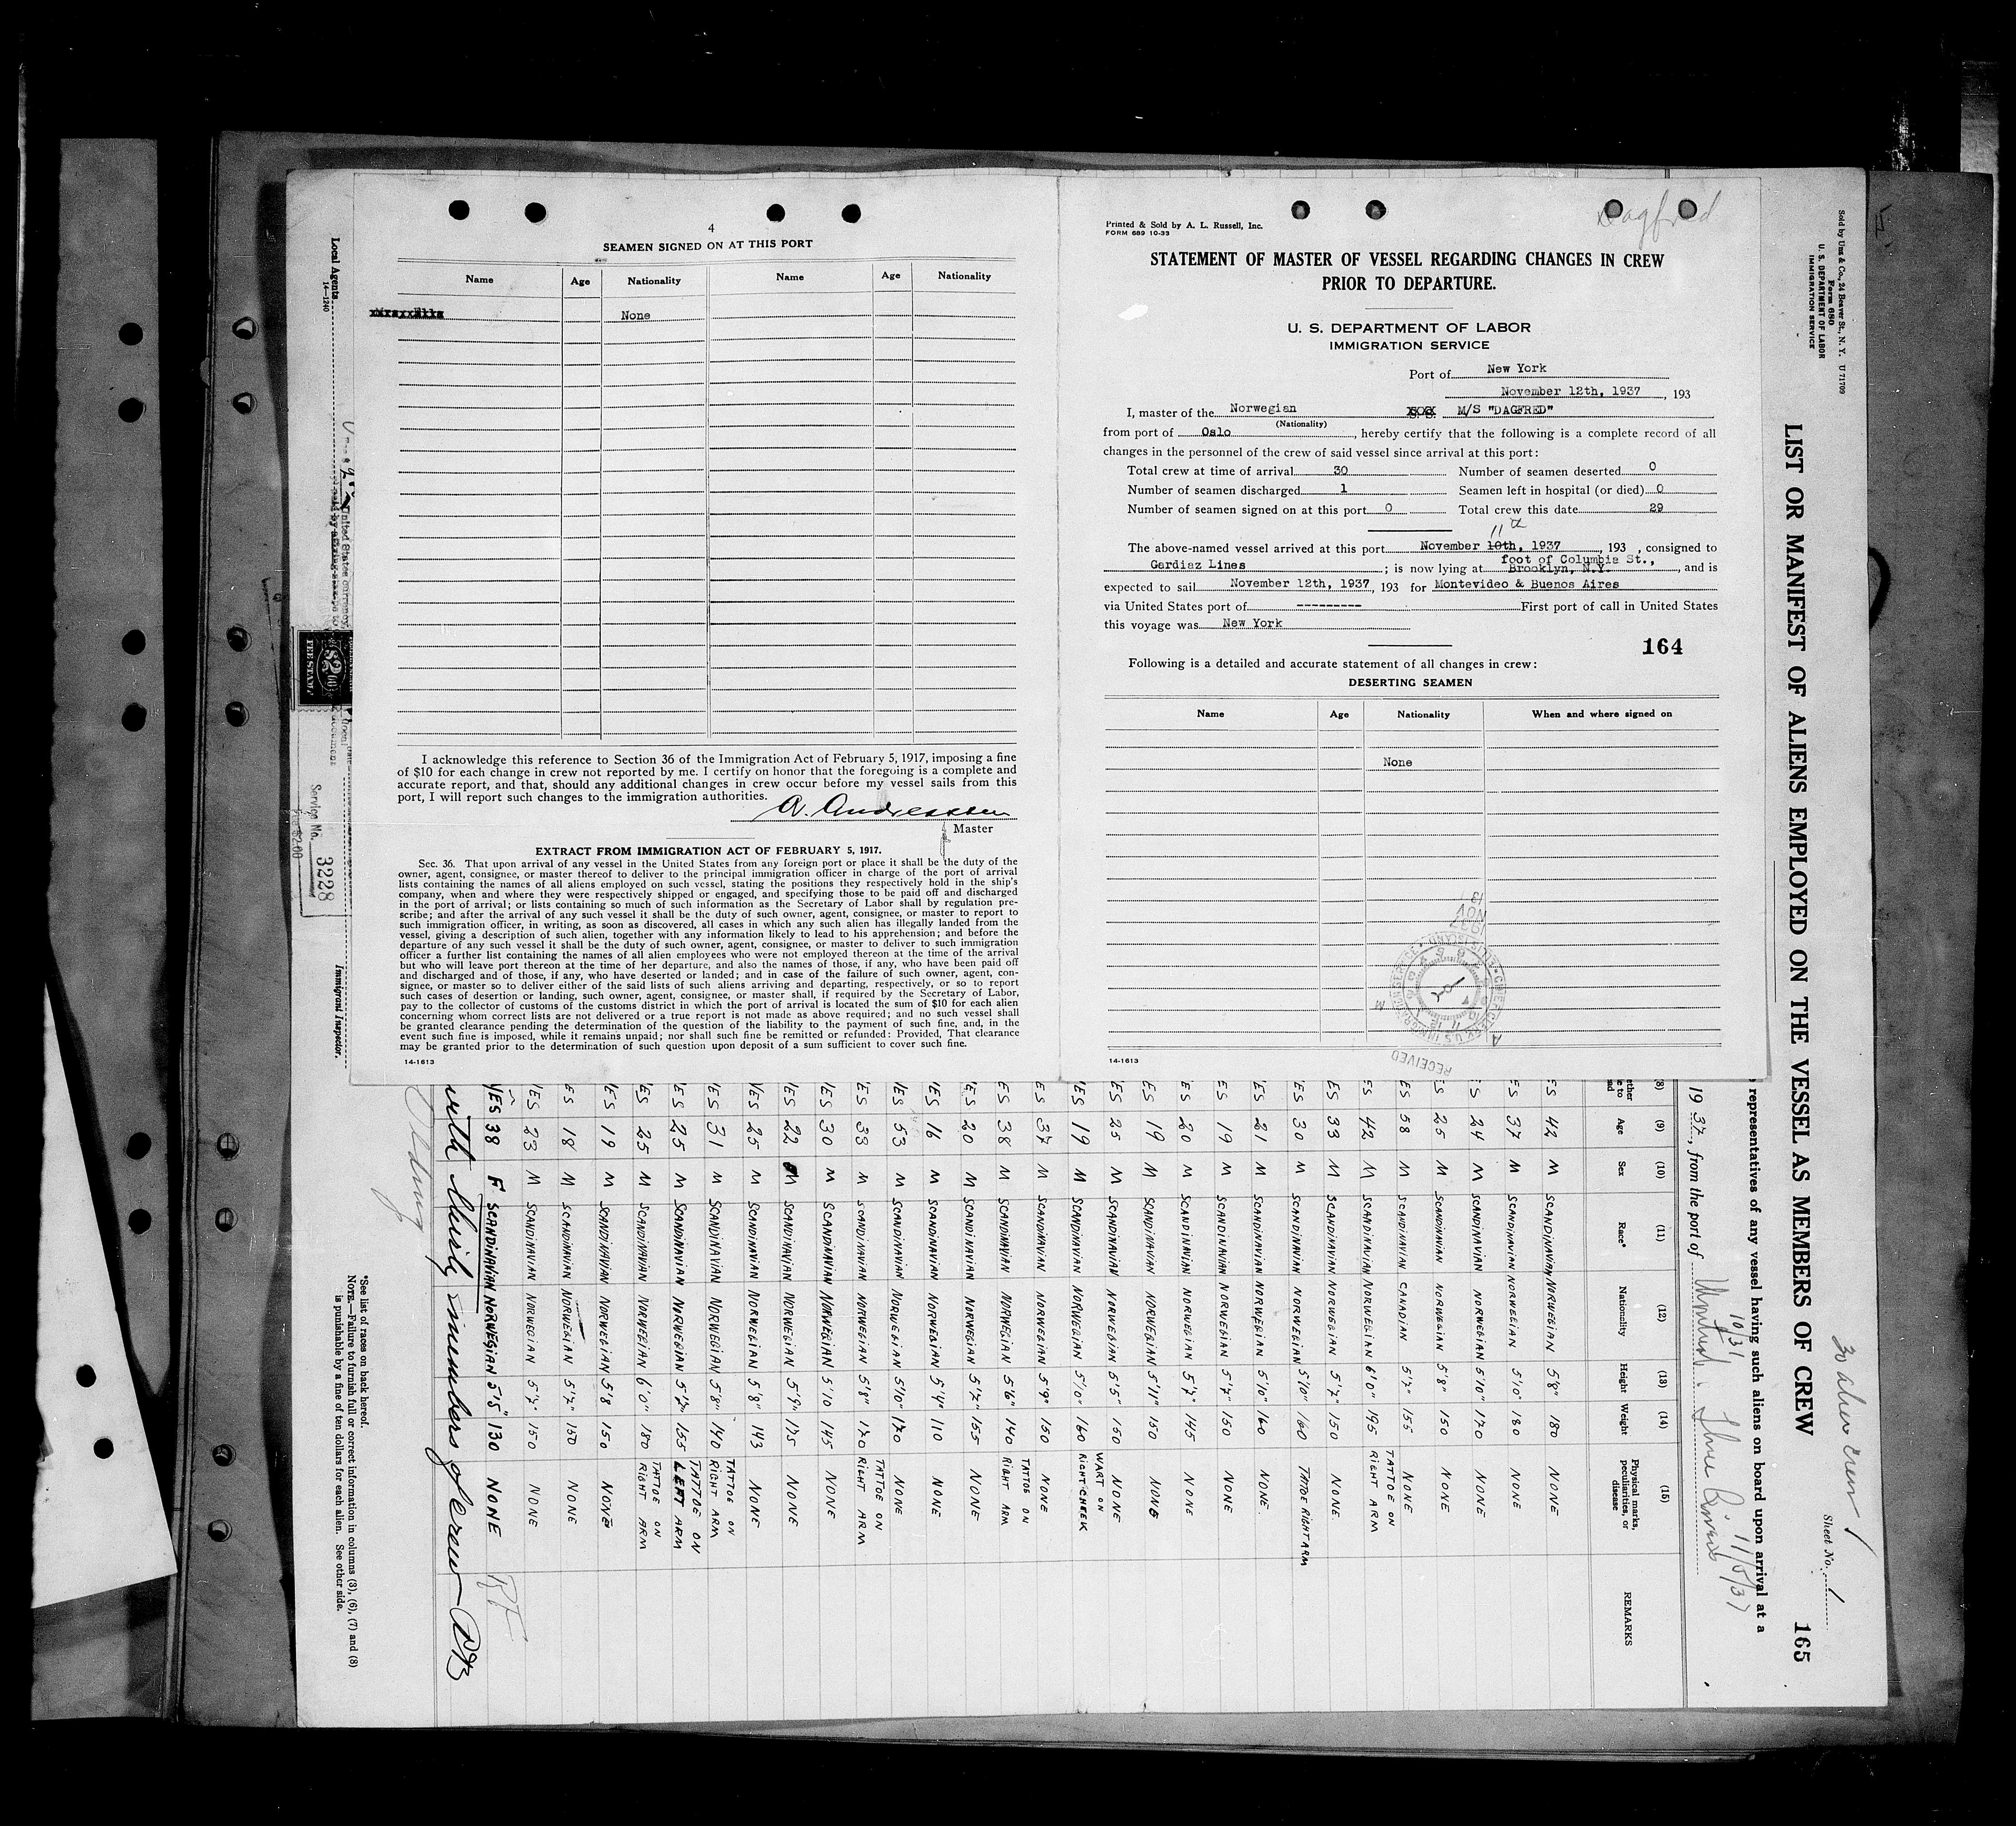 4
SEAMEN SIGNED ON AT THIS PORT
Name Age Nationality Name Age Nationality
None
I acknowledge this reference to Section 36 of the Immigration Act of February 5, 1917, imposing a fine
of $10 for each change in crew not reported by me. I certify on honor that the foregoing is a complete and
accurate report, and that, should any additional changes in crew occur before my vessel sails from this
port, I will report such changes to the immigration authorities.
Master
EXTRACT FROM IMMIGRATION ACT OF FEBRUARY 5, 1917.
Sec. 36. That upon arrival of any vessel in the United States from any foreign port or place it shall be the duty of the
owner, agent, consignee, or master thereof to deliver to the principal immigration officer in charge of the port of arrival
lists containing the names of all aliens employed on such vessel, stating the positions they respectively hold in the ship's
company, when and where they were respectively shipped or engaged, and specifying those to be paid off and discharged
in the port of arrival; or lists containing so much of such information as the Secretary of Labor shall by regulation pre-
scribe; and after the arrival of any such vessel it shall be the duty of such owner, agent, consignee, or master to report to
such immigration officer, in writing, as soon as discovered, all cases in which any such alien has illegally landed from the
vessel, giving a description of such alien, together with any information likely to lead to his apprehension; and before the
departure of any such vessel it shall be the duty of such owner, agent, consignee, or master to deliver to such immigration
officer a further list containing the names of all alien employees who were not employed thereon at the time of the arrival
but who will leave port thereon at the time of her departure, and also the names of those, if any, who have been paid off
and discharged and of those, if any, who have deserted or landed; and in case of the failure of such owner, agent, con-
signee, or master so to deliver either of the said lists of such aliens arriving and departing, respectively, or so to report
such cases of desertion or landing, such owner, agent, consignee, or master shall, if required by the Secretary of Labor,
pay to the collector of customs of the customs district in which the port of arrival is located the sum of $10 for each alien
concerning whom correct lists are not delivered or a true report is not made as above required; and no such vessel shall
be granted clearance pending the determination of the question of the liability to the payment of such fine, and, in the
event such fine is imposed, while it remains unpaid; nor shall such fine be remitted or refunded: Provided, That clearance
may be granted prior to the determination of such question upon deposit of a sum sufficient to cover such fine.
14-1613
Dagfred
Printed & Sold by A. L. Russell, Inc.
FORM 689 10-33
STATEMENT OF MASTER OF VESSEL REGARDING CHANGES IN CREW
PRIOR TO DEPARTURE.
U. S. DEPARTMENT OF LABOR
IMMIGRATION SERVICE
Port of New York
November 12th, 1937, 193
I, master of the Norwegian M/S "DAGFRED"
(Nationality)
from port of Oslo, hereby certify that the following is a complete record of all
changes in the personnel of the crew of said vessel since arrival at this port:
Total crew at time of arrival 30 Number of seamen deserted 0
Number of seamen discharged 1 Seamen left in hospital (or died) 0
Number of seamen signed on at this port 0 Total crew this date 29
11th
The above-named vessel arrived at this port November 10th, 1937, 193 , consigned to
foot of Columbia St.,
Gardiaz Lines ; is now lying at Brooklyn, N.Y. , and is
expected to sail November 12th, 1937, 193 for Montevideo & Buenos Aires
via United States port of --------- First port of call in United States
this voyage was New York
164
Following is a detailed and accurate statement of all changes in crew:
DESERTING SEAMEN
Name Age Nationality When and where signed on
None
RECEIVED
14-1613
Sold by Unz & Co., 24 Beaver St., N. Y. U 71709
Form 680
U. S. DEPARTMENT OF LABOR
IMMIGRATION SERVICE
30 alien crew
Sheet No. 1
LIST OR MANIFEST OF ALIENS EMPLOYED ON THE VESSEL AS MEMBERS OF CREW 165
representatives of any vessel having such aliens on board upon arrival at a
1937, from the port of Montreal
10/31
(8) (9) (10) (11) (12) (13) (14) (15)
Age Sex Race* Nationality Height Weight Physical marks, peculiarities, or disease REMARKS
ES 42 M SCANDINAVIAN NORWEGIAN 5'8" 180 NONE
ES 37 M SCANDINAVIAN NORWEGIAN 5'10" 180 NONE
ES 24 M SCANDINAVIAN NORWEGIAN 5'10" 170 NONE
ES 25 M SCANDINAVIAN NORWEGIAN 5'8" 150 NONE
ES 58 M SCANDINAVIAN CANADIAN 5'7" 155 NONE
ES 42 M SCANDINAVIAN NORWEGIAN 6'0" 195 TATTOE ON RIGHT ARM
ES 33 M SCANDINAVIAN NORWEGIAN 5'7" 150 NONE
ES 30 M SCANDINAVIAN NORWEGIAN 5'10" 160 TATTOE RIGHT ARM
ES 21 M SCANDINAVIAN NORWEGIAN 5'10" 160 NONE
ES 19 M SCANDINAVIAN NORWEGIAN 5'7" 150 NONE
ES 20 M SCANDINAVIAN NORWEGIAN 5'7" 145 NONE
ES 19 M SCANDINAVIAN NORWEGIAN 5'11" 150 NONE
ES 25 M SCANDINAVIAN NORWEGIAN 5'5" 150 NONE
YES 19 M SCANDINAVIAN NORWEGIAN 5'10" 160 WART ON RIGHT CHEEK
ES 37 M SCANDINAVIAN NORWEGIAN 5'9" 150 NONE
ES 38 M SCANDINAVIAN NORWEGIAN 5'6" 140 TATTOE ON RIGHT ARM
YES 20 M SCANDINAVIAN NORWEGIAN 5'7" 155 NONE
YES 16 M SCANDINAVIAN NORWEGIAN 5'4" 110 NONE
YES 53 M SCANDINAVIAN NORWEGIAN 5'10" 170 NONE
ES 33 M SCANDINAVIAN NORWEGIAN 5'8" 170 TATTOE ON RIGHT ARM
YES 30 M SCANDINAVIAN NORWEGIAN 5'10 145 NONE
YES 22 M SCANDINAVIAN NORWEGIAN 5'9" 175 NONE
YES 25 M SCANDINAVIAN NORWEGIAN 5'8" 143 NONE
ES 31 M SCANDINAVIAN NORWEGIAN 5'8" 140 TATTOE ON RIGHT ARM
ES 25 M SCANDINAVIAN NORWEGIAN 5'7" 155 TATTOE ON LEFT ARM
ES 25 M SCANDINAVIAN NORWEGIAN 6'0" 180 TATTOE ON RIGHT ARM
YES 19 M SCANDINAVIAN NORWEGIAN 5'8 150 NONE
ES 18 M SCANDINAVIAN NORWEGIAN 5'7" 150 NONE
YES 23 M SCANDINAVIAN NORWEGIAN 5'7" 150 NONE
YES 38 F SCANDINAVIAN NORWEGIAN 5'5" 130 NONE
with thirty members of crew
*See list of races on back hereof.
NOTE.—Failure to furnish full or correct information in columns (3), (6), (7) and (8)
is punishable by a fine of ten dollars for each alien. See other side.
Local Agents
14-1240
Immigrant Inspector.
$2.00
FEE STAMP
Service No. 3228
Fee $2.00